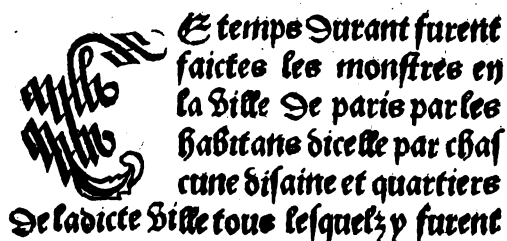 CE temps durant furent
faictes les monstres en
la ville de paris par les
habitans dicelle par chas
cune disaine et quartiers
de ladicte ville tous lesquelz y furent